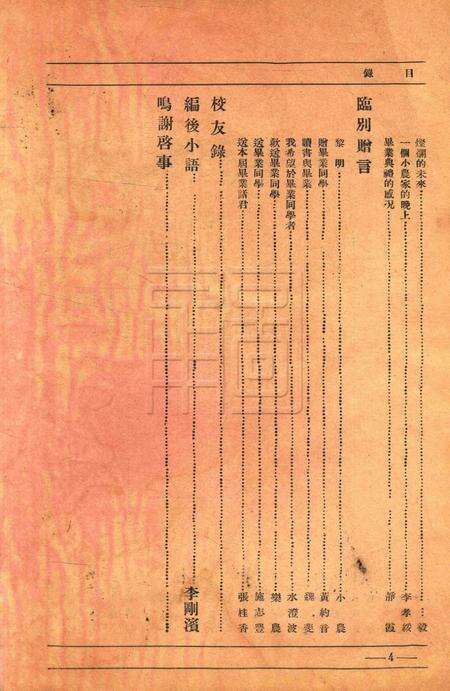 目錄
燦爛的未來……毅
一個小農家的晚上……李孝綏
畢業典禮的感况……靜霞
臨別贈言
黎明……小農
贈畢業同學……黃約音
讀書與畢業……斐
我希望於畢業同學者……水澄波
歡送畢業同學……樂農
送畢業同學……施志豐
送本屆畢業諸君……張桂香
校友錄……
編後小語……李剛濱
鳴謝啓事……
—4—